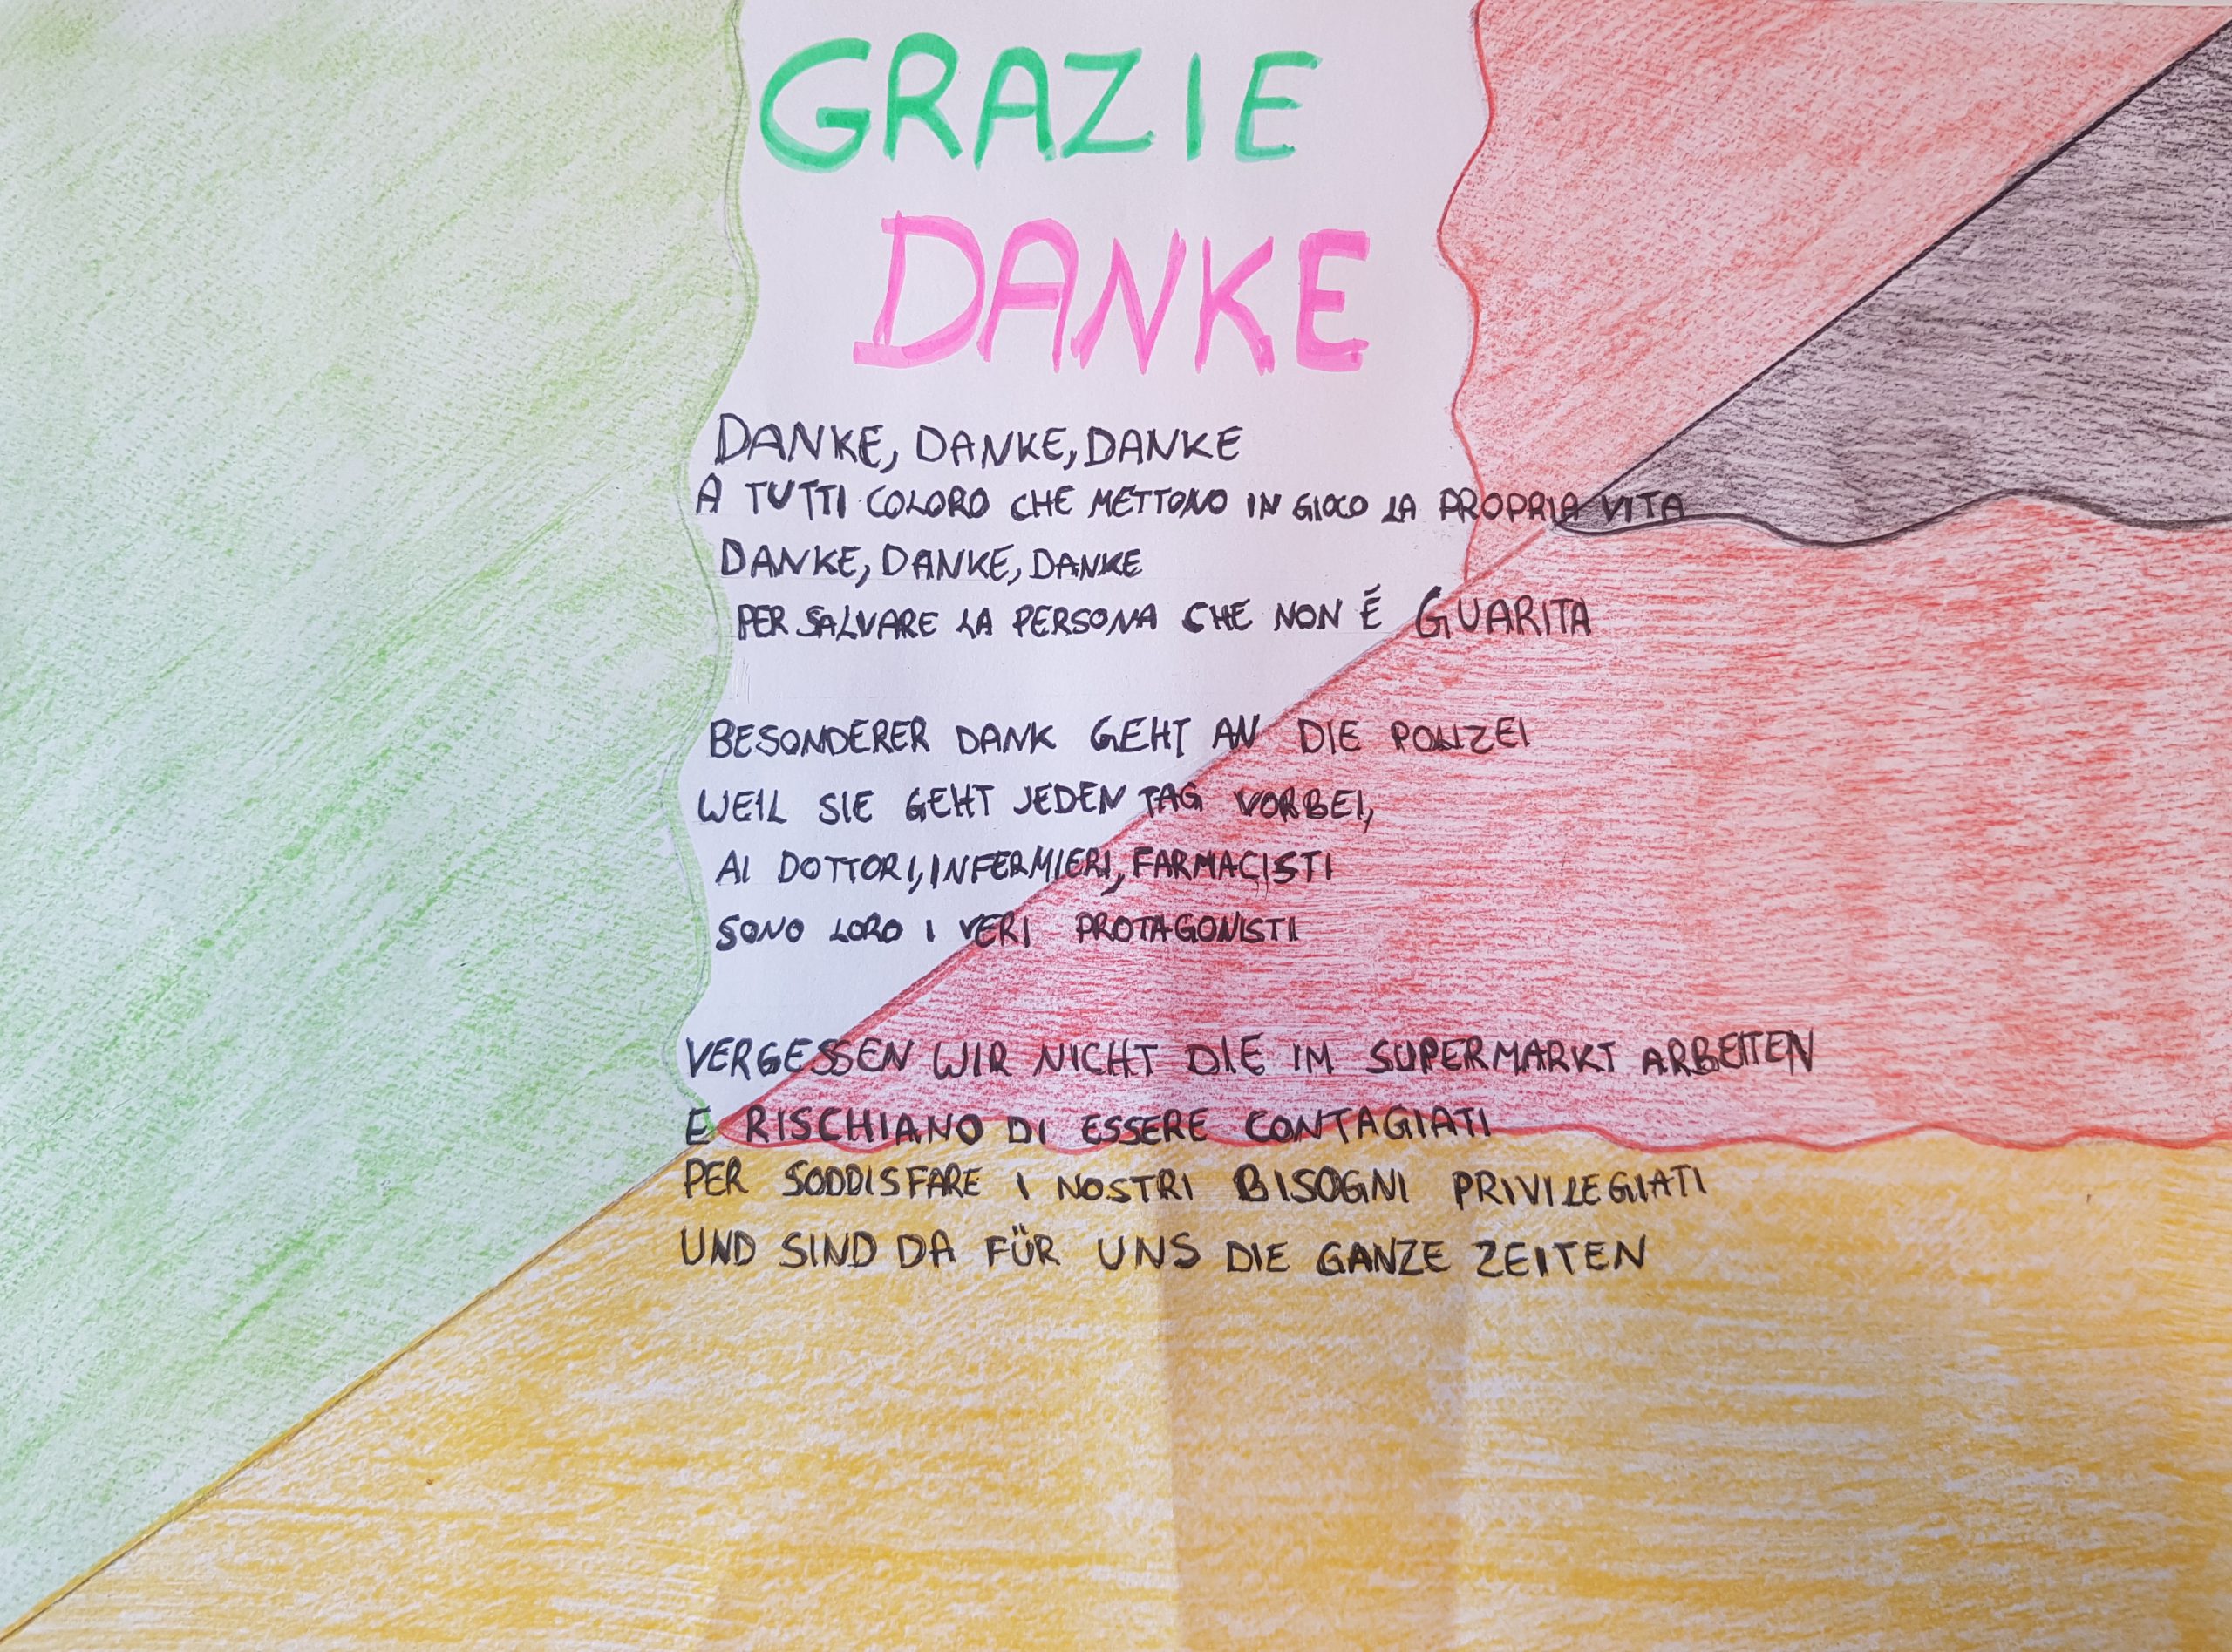 GRAZIE
DANKE
DANKE, DANKE, DANKE
A TUTTI COLORO CHE METTONO IN GIOCO LA PROPRIA VITA
DANKE, DANKE, DANKE
PER SALVARE LA PERSONA CHE NON É GUARITA
BESONDERER DANK GEHT AN DIE POLIZEI
WEIL SIE GEHT JEDEN TAG VORBEI,
AI DOTTORI, INFERMIERI, FARMACISTI
SONO LORO I VERI PROTAGONISTI
VERGESSEN WIR NICHT DIE IM SUPERMARKT ARBEITEN
E RISCHIANO DI ESSERE CONTAGIATI
PER SODDISFARE I NOSTRI BISOGNI PRIVILEGIATI
UND SIND DA FÜR UNS DIE GANZE ZEITEN